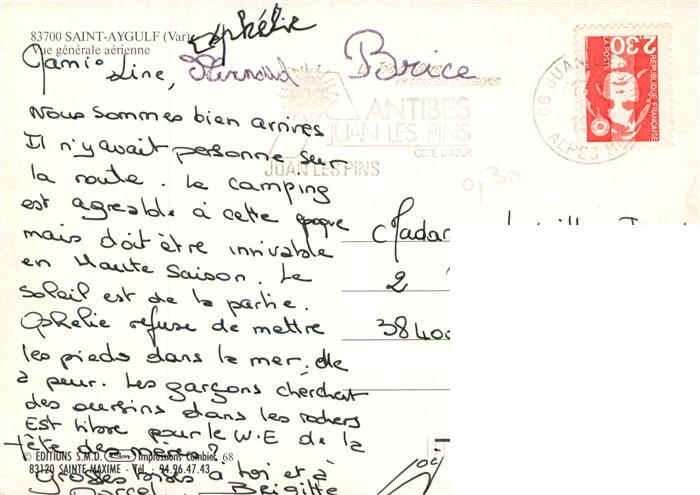 83700 SAINT-AYGULF (Var)
Vue générale aérienne
Ophélie
Mamie Line, Arnaud Brice
2,30
LA POSTE
REPUBLIQUE FRANÇAISE
06 JUAN
ALPES
ANTIBES
JUAN LES PINS
COTE D'AZUR
JUAN LES PINS
0,30
Nous sommes bien arrivés
Il n'y avait personne sur
la route. Le camping
est agréable à cette époque
mais doit être invivable
en Haute Saison. Le
soleil est de la partie.
Ophélie refuse de mettre
les pieds dans la mer, elle
à peur. Les garçons cherchent
des oursins dans les rochers
Est libre pour le W.E de la
tête des mères?
Grosses bises à toi et à
Marcel Brigitte
Madame
2
38400
© EDITIONS S.M.D. Impressions Combier 68
83120 SAINTE-MAXIME - Tél. : 94.96.47.43